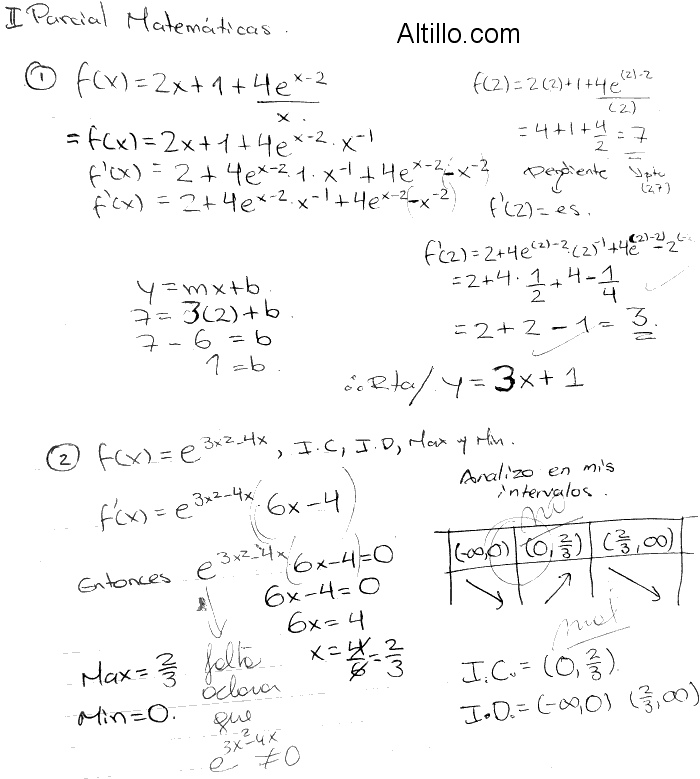 II Parcial Matemáticas.
Altillo.com
① f(x) = 2x + 1 + 4e^(x-2)/x.
= f(x) = 2x + 1 + 4e^(x-2) · x^(-1)
f'(x) = 2 + 4e^(x-2) · 1 · x^(-1) + 4e^(x-2) · -x^(-2)
f'(x) = 2 + 4e^(x-2) · x^(-1) + 4e^(x-2) (-x^(-2))
f(2) = 2(2) + 1 + 4e^((2)-2)/(2)
= 4 + 1 + 4/2 = 7
pendiente pto (2,7)
f'(2) = es.
f'(2) = 2 + 4e^((2)-2) · (2)^(-1) + 4e^((2)-2) - 2^(-2)
= 2 + 4 · 1/2 + 4 - 1/4
= 2 + 2 - 1 = 3.
y = mx + b.
7 = 3(2) + b
7 - 6 = b
1 = b.
∴ Rta/ y = 3x + 1
② f(x) = e^(3x2-4x), I.C, I.D, Max y Min.
f'(x) = e^(3x2-4x) (6x-4)
Entonces e^(3x2-4x) (6x-4) = 0
6x - 4 = 0
6x = 4
x = 4/6 = 2/3
Max = 2/3
Min = 0.
falta
aclarar
que
e^(3x²-4x) ≠ 0
Analizo en mis
intervalos.
no
(-∞,0) (0, 2/3) (2/3, ∞)
↘ ↗ ↘
mal
I.C. = (0, 2/3).
I.D. = (-∞,0) (2/3, ∞)